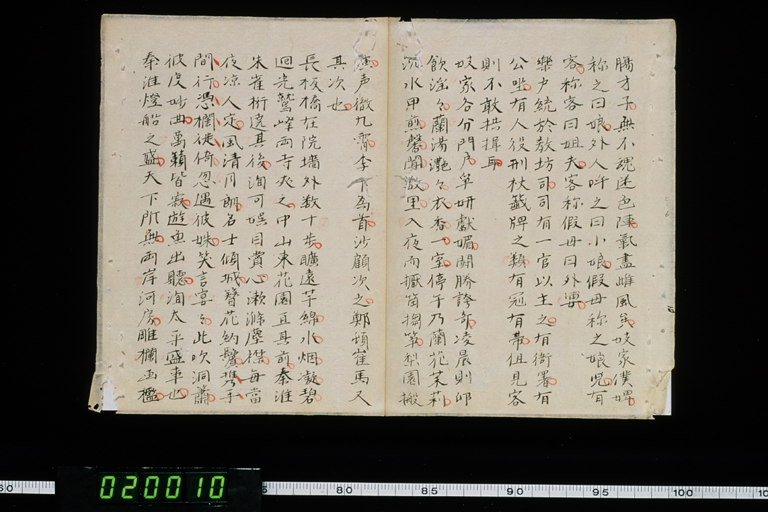 騰才子無不魂迷色陣氣盡雌風矣妓家僕婢
称之曰娘外人呼之曰小娘假母称之娘児有
客称客曰姐夫客称假母曰外婆
樂户統於教坊司司有一官以主之有衙署有
公座有人役刑杖籤牌之類有冠有帶但見客
則不敢拱揖耳
妓家各分門户争妍獻媚鬪勝誇奇凌晨則卯
飲淫々蘭湯灧々衣香一室停午乃蘭花茉莉
沉水甲煎馨聞數里入夜而擫笛搊筝梨園搬
演声徹九霄李卞為首沙顧次之鄭頓崔馬又
其次也
長板橋在院墻外数十步曠遠芊綿水烟凝碧
迴光鷲峰兩寺夾之中山東花園亘其前秦淮
朱雀桁遶其後洵可娱目賞心漱滌塵襟每當
夜凉人定風清月朗名士傾城簪花約鬢携手
閒行憑欄徙倚忽遇彼姝笑言宴々此吹洞簫
彼度妙曲萬籟皆寂遊魚出聽洵太平盛事也
秦淮燈船之盛天下所無兩岸河房雕欄画檻
020010
60
80
85
90
95
100